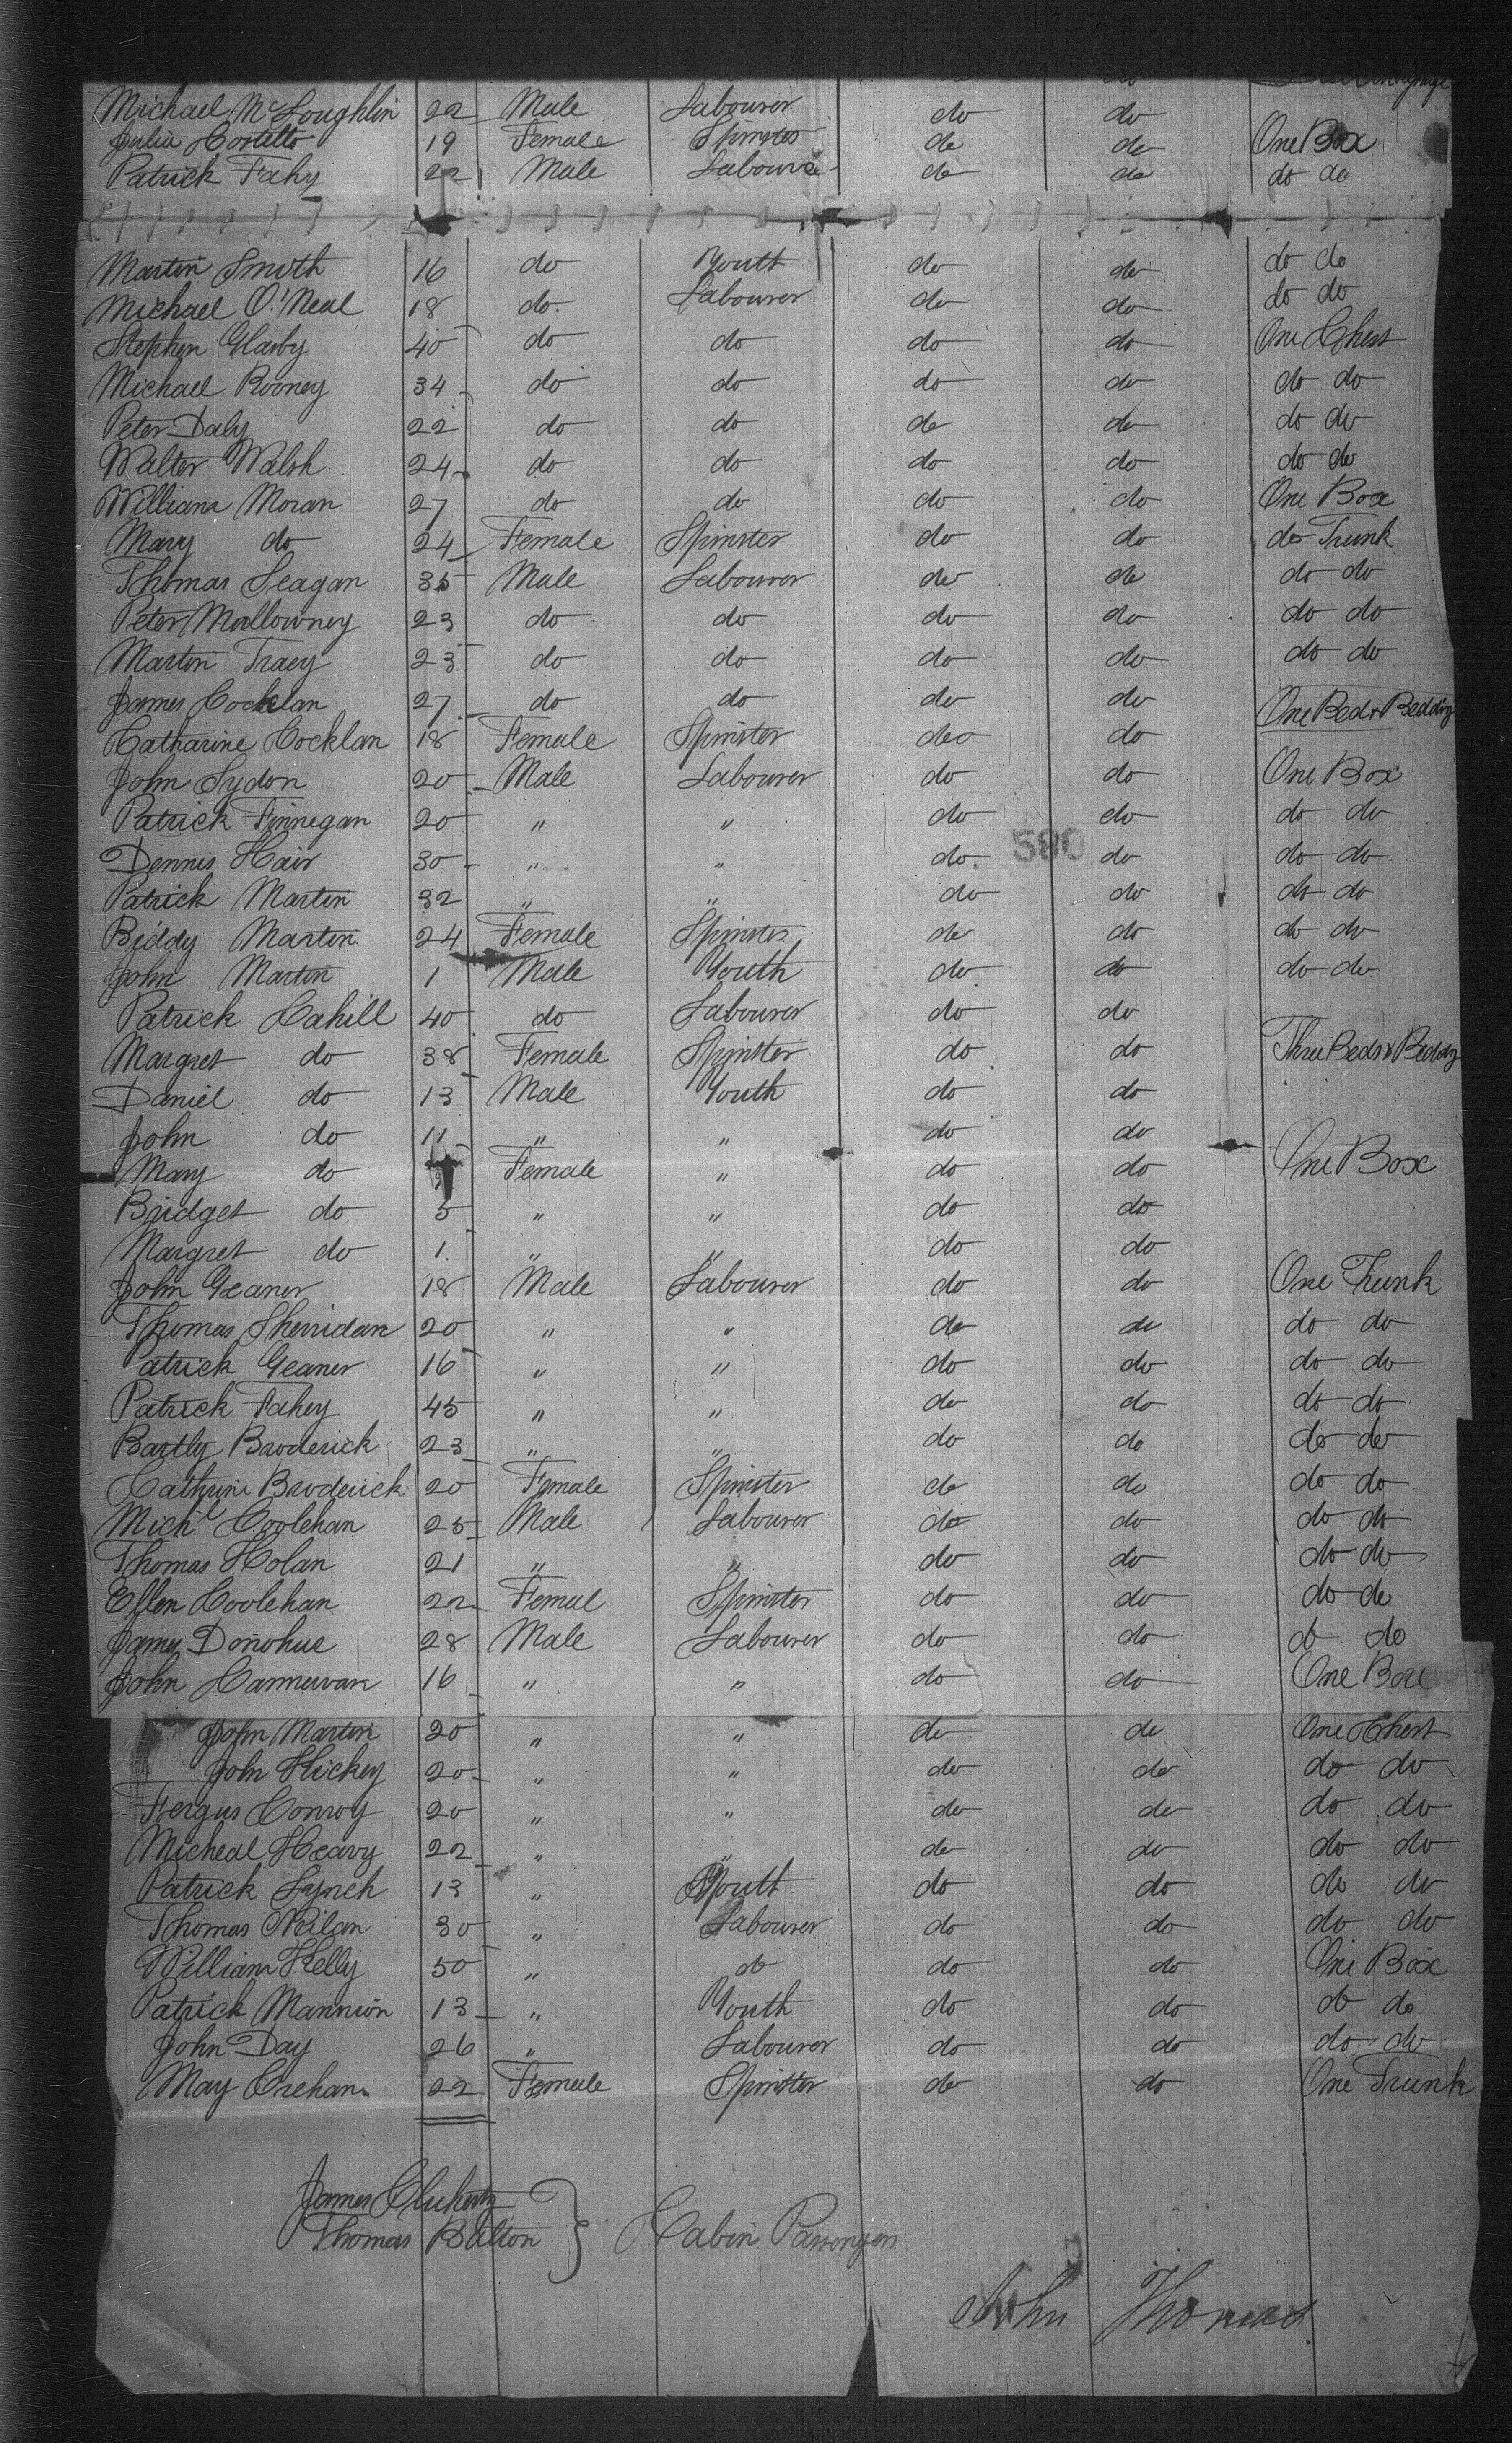 Michael McLoughlin 22 Male Labourer do do
Julia Costello 19 Female Spinster do do One Box
Patrick Fahy 22 Male Labourer do do do do
Martin Smith 16 do Youth do do do do
Michael O'Neal 18 do. Labourer do do do do
Stephen Glasby 40 do do do do One Chest
Michael Rooney 34 do do do do do do
Peter Daly 22 do do do do do do
Walter Walsh 24 do do do do do do
William Moran 27 do do do do One Box
Mary do 24 Female Spinster do do do Trunk
Thomas Leagan 35 Male Labourer do do do do
Peter Mallowney 23 do do do do do do
Martin Tracy 23 do do do do do do
James Cocklan 27 do do do do One Bed & Bedding
Catharine Cocklan 18 Female Spinster do do
John Lydon 20 Male Labourer do do One Box
Patrick Finnegan 20 " " do do do do
590
Dennis Hair 30 " " do do do do
Patrick Martin 32 " " do do do do
Biddy Martin 24 Female Spinster do do do do
John Martin 1 Male Youth do do do do
Patrick Cahill 40 do Labourer do do
Margret do 38 Female Spinster do do Three Beds & Bedding
Daniel do 13 Male Youth do do
John do 11 " " do do
Mary do Female " do do One Box
Bridget do 5 " " do do
Margret do 1 " " do do
John Geaner 18 Male Labourer do do One Trunk
Thomas Sherridan 20 " " do do do do
Patrick Geaner 16 " " do do do do
Patrick Fahey 45 " " do do do do
Bartly Broderick 23 " " do do do do
Cathrine Broderick 20 Female Spinster do do do do
Michl Coolehan 25 Male Labourer do do do do
Thomas Holan 21 " " do do do do
Ellen Coolehan 22 Femal Spinster do do do do
James Donohue 28 Male Labourer do do do do
John 16 " " do do One Box
John Martin 20 " " do do One Chest
John Hickey 20 " " do do do do
Fergus Conroy 20 " " do do do do
Micheal Heavy 22 " " do do do do
Patrick Lynch 13 " Youth do do do do
Thomas Neilan 30 " Labourer do do do do
William Kelly 50 " do do do One Box
Patrick Mannion 13 " Youth do do do do
John Day 26 " Labourer do do do do
May Crehan 22 Female Spinster do do One Trunk
James
Thomas Balton } Cabin Passengers
John Thomas